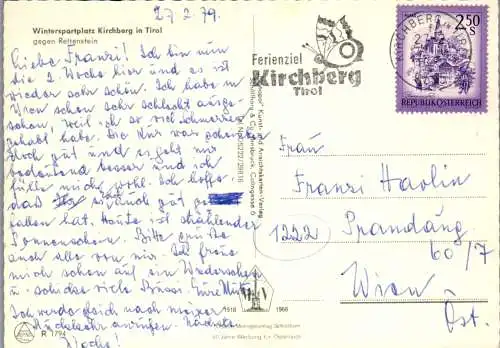 27.2.79.
Wintersportplatz Kirchberg in Tirol
gegen Rettenstein
Liebe Franzi! Ich bin nun
die 2. Woche hier und es ist
wieder sehr schön. Ich habe in
Wien schon sehr schlecht ausge-
schaut, weil ich so viel Schmerzen
gehabt habe. Die Kur war scheinbar
doch gut und es geht mir
bedeutend besser und ich
fühle mich wohl. Ich hoffe,
daß es irgendh gut
fallen hat. Heute ist strahlender
Sonnenschein. Bitte grüße
auch alle von mir. Ich freue
mich schon auf ein Wiedersehen
u. schicke viele Bussi Eure Mitzi
Ich werde Dich nach meiner
Rückkehr anrufen. Nächste
Woche!
R 1794
Ferienziel
Kirchberg
Tirol
KIRCHBERG
2.50
S
REPUBLIK ÖSTERREICH
Frau
Franzi Havlin
1222 Prandaug.
60/7
Wien
Öst.
1918 1968